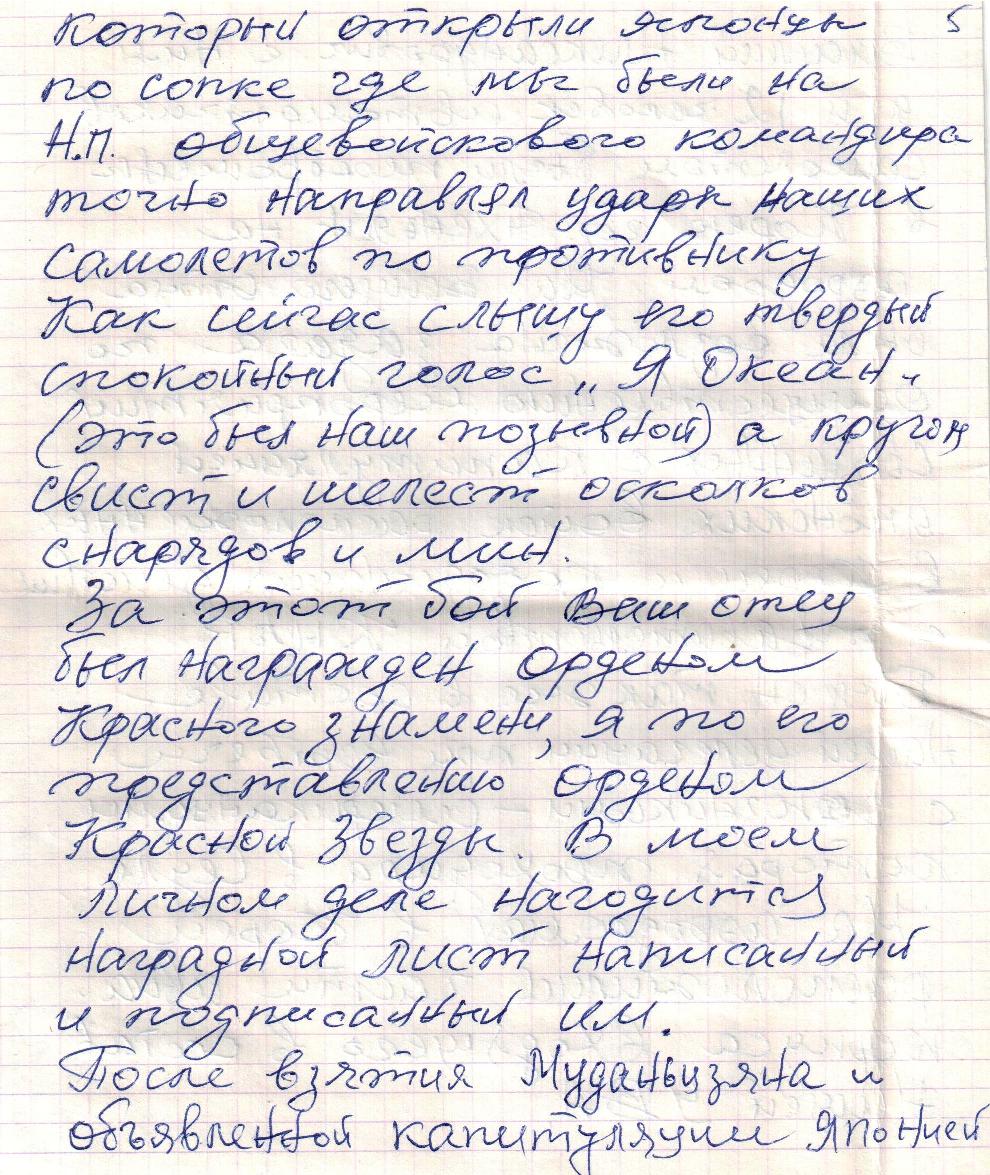 который открыли японцы 5
по сопке где мы были на
Н.П. общевойскового командира
точно направлял удары наших
самолетов по противнику
Как сейчас слышу его твердый
спокойный голос „Я Океан"
(это был наш позывной) а кругом
свист и шелест осколков
снарядов и мин.
За этот бой Ваш отец
был награжден орденом
Красного знамени, я по его
представлению орденом
Красной Звезды. В моем
личном деле находится
наградной лист написанный
и подписанный им.
После взятия Муданьцзяна и
объявленной капитуляции Японией